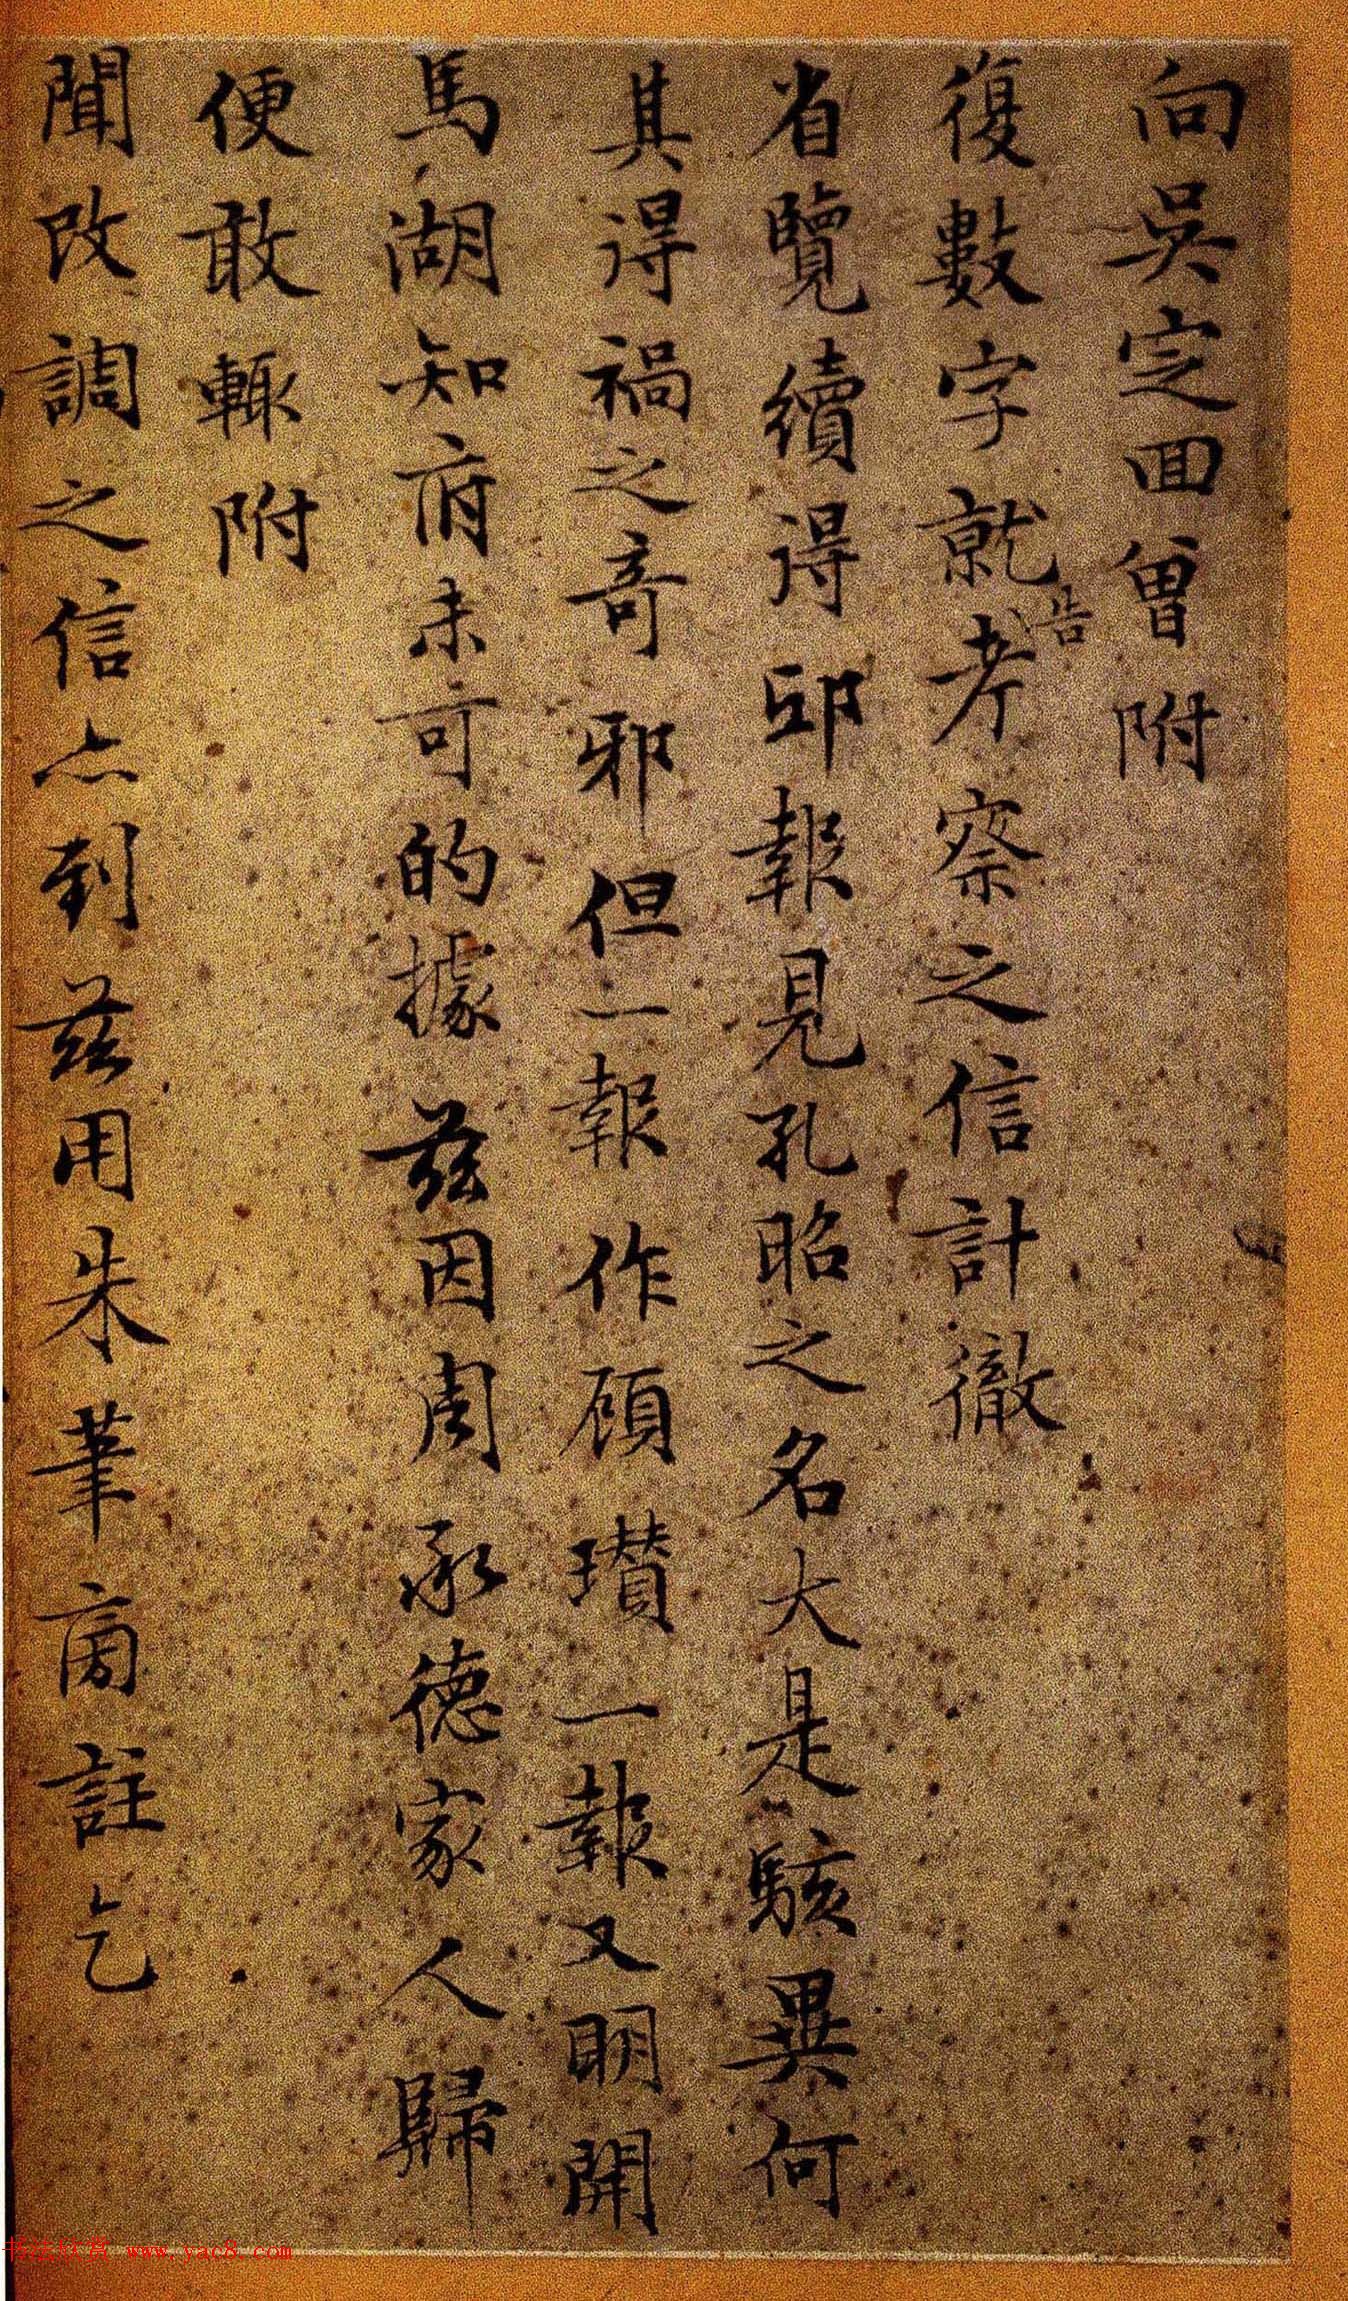 向吳定回曾附
復數字就告考察之信計徹
省覽續得邱報見孔昭之名大是駭異何
其得禍之奇邪但一報作顧瓚一報又明開
馬湖知府未可的據茲因周承德家人歸
便敢輒附
聞改調之信亦到茲用朱筆
註乞
书法欣赏 www.yac8.com